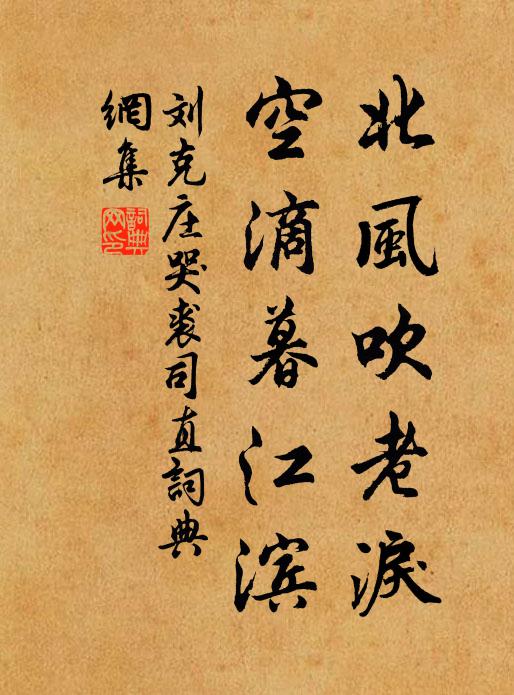 北風吹老淚
空滴暮江滨
刘克庄哭裘司直詞典
網集
詞典
网印